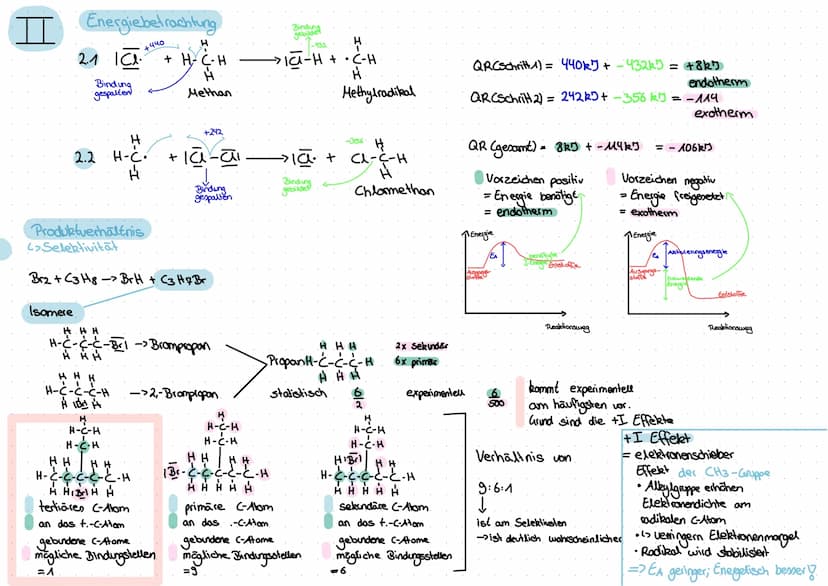 II
Energiebetrachtung
2.1 |Cl· + H-C-H → |Cl-H + ·C-H
+440
H
H
Bindung gebildet
-432
H
H
Bindung gespalten
Methan
Methylradikal
QR(Schritt 1) = 440kJ + -432kJ = +8kJ
endotherm
QR(Schritt 2) = 242kJ + -356kJ = -114
exotherm
QR(gesamt) = 8kJ + -114kJ = -106kJ
2.2 H-C· + |Cl-Cl| → |Cl· + Cl-C-H
H
H
+242
H
H
Bindung gespalten
Bindung gebildet
Chlormethan
Vorzeichen positiv
= Energie benötigt
= endotherm
Vorzeichen negativ
= Energie freigesetzt
= exotherm
Energie
EA
Ausgangsstoffe
benötigte Energie
Endstoffe
Reaktionsweg
Energie
EA
Aktivierungsenergie
Ausgangsstoffe
Energie
Endstoffe
Reaktionsweg
Produktverhältnis
↳ Selektivität
Br2 + C3H8 → BrH + C3H7Br
Isomere
H H H
H-C-C-C-Br| → Brompropan
H H H
H H H
H-C-C-C-H → 2,-Brompropan
H |Br| H
Propan H-C-C-C-H
H H H
H H H
2x sekundär
6x primär
statistisch 6/2
experimentell 6/500
kommt experimentell
am häufigsten vor.
Grund sind die +I Effekte
H
H-C-H
H-C-H
H H H H
H-C-C-C-C-C-H
H H |Br| H H
tertiäres C-Atom
an das t.-C-Atom
gebundene C-Atome
mögliche Bindungsstellen
= 1
H
H-C-H
H-C-H
H H H H
|Br-C-C-C-C-C-H
H H H H H
primäre C-Atom
an das .-C-Atom
gebundene C-Atome
mögliche Bindungsstellen
= 9
H
H-C-H
H-C-H
H |Br| H H
H-C-C-C-C-C-H
H H H H H
sekundäre C-Atom
an das t.-C-Atom
gebundene C-Atome
mögliche Bindungsstellen
= 6
Verhältnis von
9:6:1
↓
ist am Selektivsten
→ ist deutlich wahrscheinlicher
+I Effekt
= elektronenschieber
Effekt der CH3-Gruppe
• Alkylgruppe erhöhen
Elektronendichte am
radikalen C-Atom
• ↳ verringern Elektronenmangel
• Radikal wird stabilisiert
=> EA geringer; Energetisch besser!